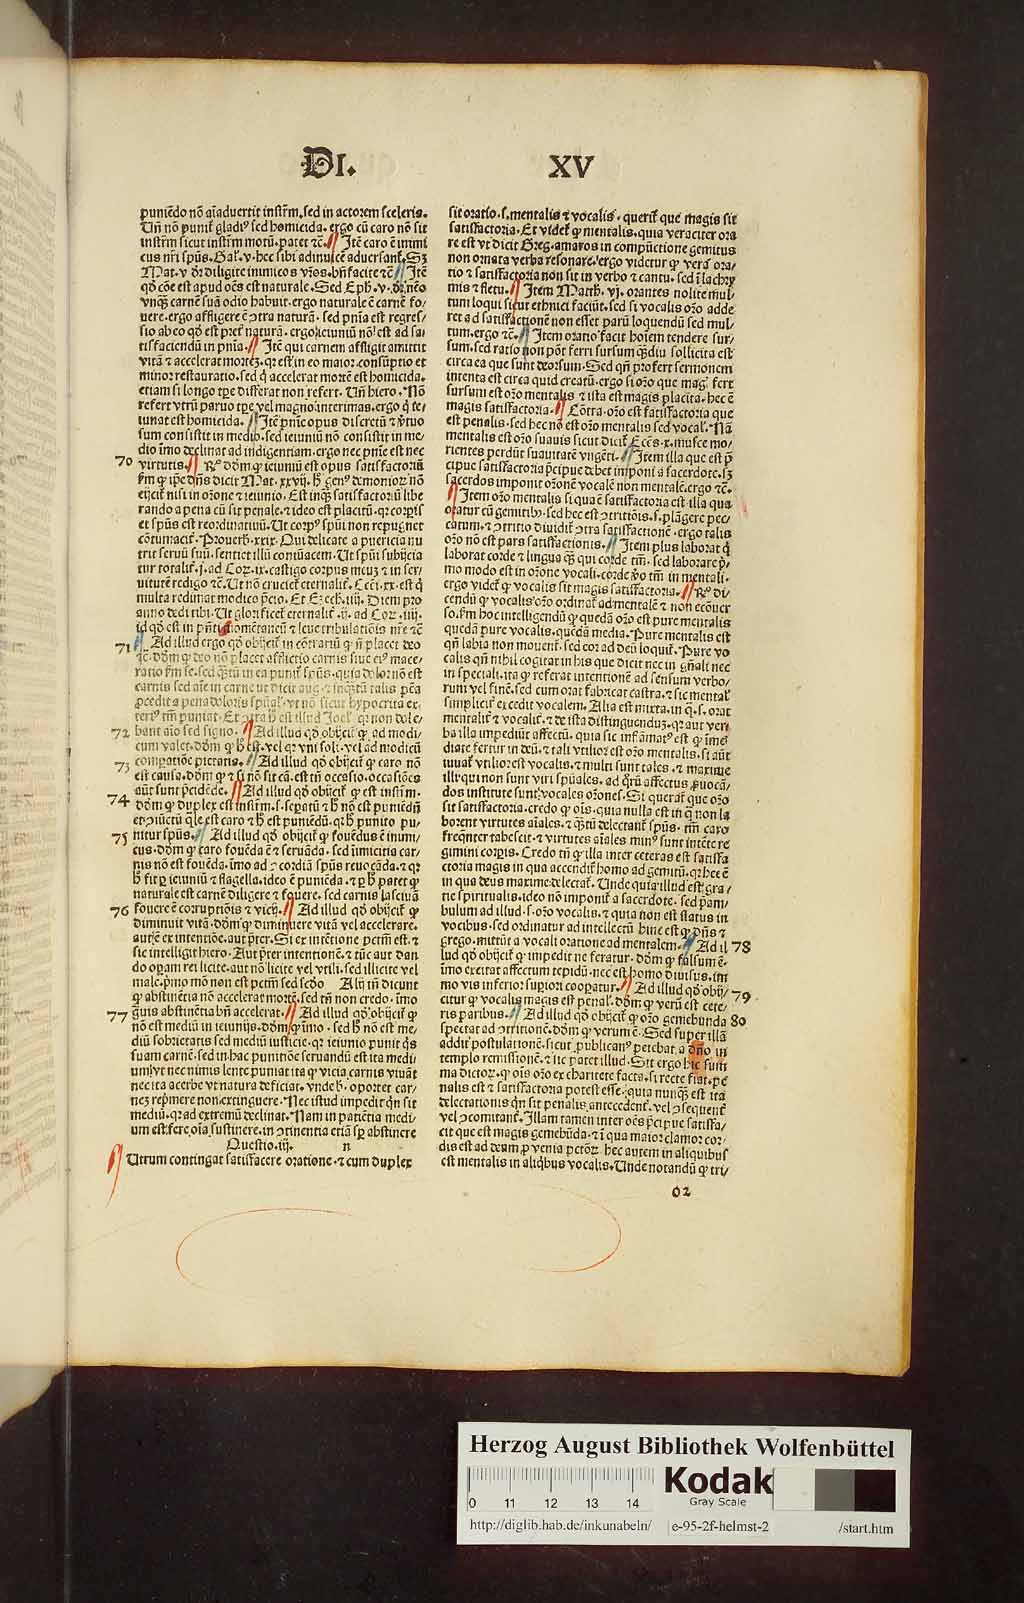 DI. XV
puniēdo nō aīaduertit instr̄m. sed in actorem sceleris.
Uñ nō punit̉ gladiꝰ sed homicida. ergo cū caro nō sit
instr̄m sicut instr̄m motū. patet ⁊c̄. Itē caro ē inimi
cus nr̄i spūs. Gal̉. v. hec sibi adinuicē aduersant̉. Sꝫ
Mat. v dr̄ diligite inimicos vr̄os. bn̄ facite ⁊c̄ Itē
qđ cōe est apud oēs est naturale. Sed Eph. v. dr̄. nēo
vnqꝫ carnē suā odio habuit. ergo naturale ē carnē fo/
uere. ergo affligere ē ꝯtra naturā. sed pnīa est regres/
sio ab eo qđ est pret̉ naturā. ergo ieiuniū nō est ad sa/
tisfaciendū in pnīa. Itē qui carnem affligit amittit
vitā ⁊ accelerat mortē. qꝛ est in eo maior consūptio et
minor restauratio. sed q̇ accelerat mortē est homicida.
etiam si longo tꝑe differat non refert. Uñ hiero. Nō
refert vtrū paruo tꝑe vel magno interimas. ergo q̇ ie/
iunat est homicida. Itē pnīe opus discretū ⁊ v̄tuo
sum consistit in medio. sed ieiuniū nō consistit in me/
dio īmo declinat ad indigentiam. ergo nec pnīe est nec
70 virtutis. Rº dōm ꝙ ieiuniū est opus satisfactoriū
km̄ ꝙ ipē dn̄s dicit Mat. xxvij. h̄ genꝰ demonioꝝ nō
eijcit̉ nisi in or̄one ⁊ ieiunio. Est inqꝫ satisfactoriū libe
rando a pena cū sit penale. ⁊ ideo est placitū. qꝛ corpis
et spūs est reordinatiuū. Ut corpꝰ spūi non repugnet
cōtumacit̉. Prouerb. xxix. Qui delicate a puericia nu
trit seruū suū. sentiet illū contūacem. Ut spūi subijcia
tur totalit̉. j. ad Cor. ix. castigo corpus meuꝫ ⁊ in ser/
uitutē redigo ⁊c̄. Ut nō crucier̉ eternalit̉. Ecc̄i. xx. est q̇
multa redimat modico p̄cio. Et Ezech. iiij. Diem pro
anno dedi tibi. Ut glorificet̉ eternalit̉. ij. ad Cor. iiij.
id qđ est in pn̄ti momētaneū ⁊ leue tribulationis nr̄e ⁊c̄
71 Ad illud ergo qđ obijcit̉ in cōtrariū ꝙ nō placet deo
⁊c̄. dōm ꝙ deo nō placet afflictio carnis siue eiꝰ mace/
ratio km̄ se. sed qꝫtū in ea punit̉ spūs. quia dolor nō est
carnis sed aīe in carne ut dicit aug. ⁊ inqꝫtū talis pēa
ꝓcedit a pena doloris spūal̉. vt nō sicut hypocrita ex
terꝰ tm̄ puniat. Et ꝯtra h̄ est illud Joel̉. qꝛ non dole/
72 bant aīo sed signo. Ad illud qđ obijcit̉ ꝙ ad modi/
cum valet. dōm ꝙ h̄ est. vel qꝛ vni soli. vel ad modicū
73 compatiōe pietatis. Ad illud qđ obijcit̉ ꝙ caro nō
est causa. dōm ꝙ ⁊ si nō sit cā. est tn̄ occasio. occasiōes
74 aūt sunt p̄cidēde. Ad illud qđ obijcit̉ ꝙ est instr̄m.
dōm ꝙ duplex est instr̄m. s. sepatū ⁊ h̄ nō est puniēdū
et ꝯiūctū q̄le est caro ⁊ h̄ est puniēdū. qꝛ h̄ punito pu/
75 nitur spūs. Ad illud qđ obijcit̉ ꝙ fouēdus ē inimi/
cus. dōm ꝙ caro fouēda ē ⁊ seruāda. sed inimicitia car/
nis nō est fouēda. īmo ad ꝯcordiā spūs reuocāda. ⁊ qꝛ
h̄ fit ꝑ ieiuniū ⁊ flagella. ideo ē puniēda. ⁊ ꝑ h̄ patet ꝙ
naturale est carnē diligere ⁊ fouere. sed carnis lasciuiā
76 fouere ē corruptiōis ⁊ vicij. Ad illud qđ obijcit̉ ꝙ
diminuit vitā. dōm ꝙ diminuere vitā vel accelerare.
aut est ex intentiōe. aut p̄ter. Si ex intētione petm̄ est. ⁊
sic intelligit hiero. Aut p̄ter intentionē. ⁊ tūc aut dan
do operam rei licite. aut nō licite vel vtili. sed illicite vel
male. p̄mo mō non est petm̄ sed scd̄o Alij tn̄ dicunt
ꝙ abstinētia nō accelerat mortē. sed tn̄ non credo. īmo
77 q̄uis abstinētia bn̄ accelerat. Ad illud qđ obijcit̉ ꝙ
nō est mediū in ieiunijs. dōm ꝙ īmo. sed h̄ nō est me/
diū sobrietatis sed mediū iusticie. qꝛ ieiunio punit q̇s
suam carnē. sed in hac punitiōe seruandū est ita medi
um. vt nec nimis lente puniat ita ꝙ vicia carnis viuāt
nec ita acerbe vt natura deficiat. vnde h̄. oportet car/
neꝫ rep̄mere non extinguere. Nec istud impedit q̇n sit
mediū. qꝛ ad extremū declinat. Nam in patiētia medi/
um est. fere oīa sustinere. in ꝯtinentia etiā sꝑ abstinere
Questio. iij. n
Utrum contingat satisfacere oratione. ⁊ cum duplex
sit oratio. s. mentalis ⁊ vocalis. querit̉ que magis sit
satisfactoria. Et videt̉ ꝙ mentalis. quia veraciter ora
re est vt dicit Greg. amaros in compūctione gemitus
non ornata verba resonare. ergo videtur ꝙ vera ora/
tio ⁊ satisfactoria non sit in verbo ⁊ cantu. sed ī lachry
mis ⁊ fletu. Item Matth. vj. orantes nolite mul/
tum loqui sicut ethnici faciūt. sed si vocalis or̄o adde
ret ad satisfactionē non esset parū loquendū sed mul/
tum. ergo ⁊c̄. Item oratio facit hoīem tendere sur/
sum. sed ratio non pōt ferri sursum qꝫdiu sollicita est
circa ea que sunt deorsum. Sed qn̄ profert sermonem
intenta est circa quid creatū. ergo si or̄o que mag̉ fert
sursum est or̄o mentalis ⁊ ista est magis placita. hec ē
magis satisfactoria. Cōtra. or̄o est satisfactoria que
est penalis. sed hec nō est or̄o mentalis sed vocal̉. Nā
mentalis est or̄o suauis sicut dicit̉ Ecc̄s. x. musce mo/
rientes perdūt suauitatē vngēti. Item illa que est p̄
cipue satisfactoria p̄cipue debet imponi a sacerdote. sꝫ
sacerdos imponit or̄onē vocalē non mentalē. ergo ⁊c̄.
Item or̄o mentalis si qua ē satisfactoria est illa qua
oratur cū gemitibꝰ. sed hec est ꝯtritōis. s. plāgere pec/
catum. ⁊ ꝯtritio diuidit̉ ꝯtra satisfactionē. ergo talis
or̄o nō est pars satisfactionis. Item plus laborat q̇
laborat corde ⁊ lingua qꝫ qui corde tm̄. sed laborare p̄/
mo modo est in or̄one vocali. corde v̄o tm̄ in mentali.
ergo videt̉ ꝙ vocalis sit magis satisfactoria. Rº di/
cendū ꝙ vocalis or̄o ordinat̉ ad mentalē ⁊ non ecōuer
so. km̄ hoc intelligendū ꝙ quedā or̄o est pure mentalis
quedā pure vocalis. quedā media. Pure mentalis est
qn̄ labia non mouent̉. sed cor ad deū loquit̉. Pure vo
calis qn̄ nihil cogitat in his que dicit nec in gn̄ali nec
in speciali. ita ꝙ referat intentionē ad sensum verbo/
rum vel finē. sed cum orat fabricat castra. ⁊ sic mental̉
simplicit̉ excedit vocalem. Alia est mixta. in q̄. s. orat
mentalit̉ ⁊ vocalit̉. ⁊ de ista distinguenduꝫ. qꝛ aut ver/
ba illa impediūt affectū. quia sic inflāmatꝰ est ꝙ īme/
diate fertur in deū. ⁊ tali vtilior est or̄o mentalis. si aūt
iuuat̉ vtilior est vocalis. ⁊ multi sunt tales. ⁊ maxime
illi qui non sunt viri spūales. ad q̄rū affectus ꝓuocā/
dos institute sunt vocales or̄ones. Si querat̉ que or̄o
sit satisfactoria. credo ꝙ oīs. quia nulla est in q̄ non la
borent virtutes aīales. ⁊ qꝫtū delectant̉ spūs. tm̄ caro
freq̄nter tabescit. ⁊ virtutes aīales minꝰ sunt intēte re/
gimini corpis. Credo tn̄ ꝙ illa inter ceteras est satisfa
ctoria magis in qua accendit̉ homo ad gemitū. qꝛ hec ē
in qua deus maxime delectat̉. Unde quia illud est gra/
tie spiritualis. ideo nō imponit̉ a sacerdote. sed p̄am/
bulum ad illud. s. or̄o vocalis. ⁊ quia non est status in
vocibus. sed ordinatur ad intellectū hinc est ꝙ dn̄s ⁊
grego. mittūt a vocali oratione ad mentalem. Ad il 78
lud qđ obijcit̉ ꝙ impedit ne feratur. dōm ꝙ falsum ē.
īmo excitat affectum tepidū. nec est homo diuisus. im
mo vis inferior supiori cooperatur. Ad illud qđ obij/
citur ꝙ vocalis magis est penal̉. dōm ꝙ verū est cete/ 79
ris paribus. Ad illud qđ obijcit̉ ꝙ or̄o gemebunda 80
spectat ad ꝯtritionē. dōm ꝙ verum ē. Sed super illā
addit̉ postulationē. sicut publicanꝰ petebat. a dn̄o in
templo remissionē. ⁊ sic patet illud. Sit ergo hic sum
ma dictoꝝ. ꝙ oīs or̄o ex charitate facta. si recte fiat. pe
nalis est ⁊ satisfactoria potest esse. quia nunqꝫ est ita
delectationis q̇n sit penalis antecedent̉. vel ꝯsequent̉
vel ꝯcomitant̉. Illam tamen inter oēs p̄cipue satisfa/
cit que est magis gemebūda. ⁊ ī qua maior clamor cor/
dis est ad deum ꝓ venia petōꝝ. hec autem in aliquibus
est mentalis in aliq̇bus vocalis. Unde notandū ꝙ tri/
o2
Herzog August Bibliothek Wolfenbüttel
0 11 12 13 14
Kodak
Gray Scale
http://diglib.hab.de/inkunabeln/ e-95-2f-helmst-2 /start.htm